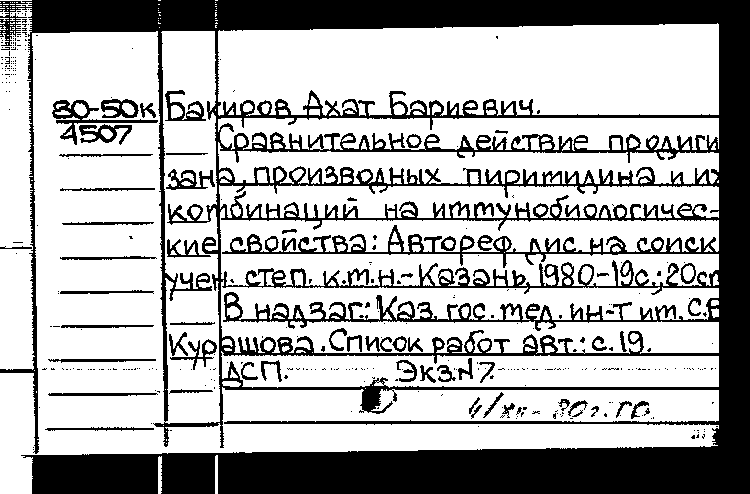 80-50к Бакиров, Ахат Бариевич.
4507 Сравнительное действие продиги
зана, производных пиримидина и их
комбинаций на иммунобиологичес=
кие свойства: Автореф. дис. на соиск
учен. степ. к.м.н.-Казань, 1980.-19с.; 20см
В надзаг.: Каз. гос. мед. ин-т им. С.В
Курашова. Список работ авт.: с.19.
ДСП. Экз.N7.
4/XII- 80г. ГО.